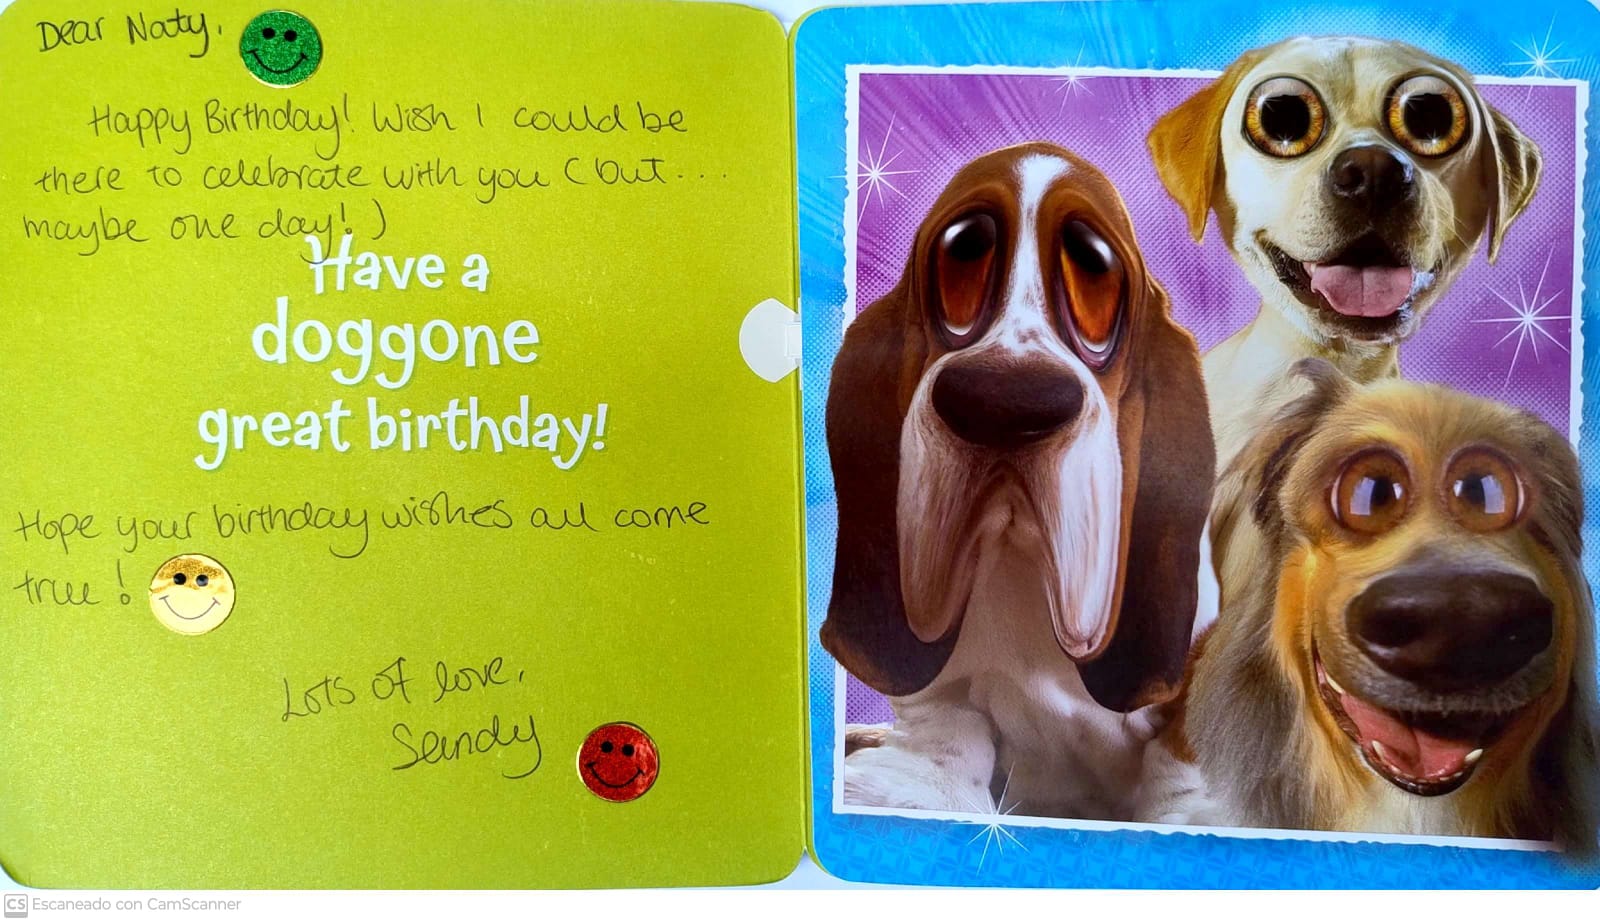 Dear Naty,
Happy Birthday! Wish I could be
there to celebrate with you (but...
maybe one day!)
Have a
doggone
great birthday!
Hope your birthday wishes all come
true!
Lots of love,
Sandy
CS Escaneado con CamScanner